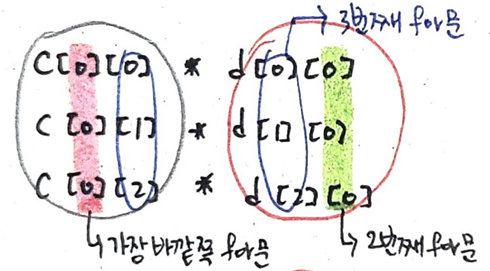 3번째 for문
C[0][0] * d[0][0]
C[0][1] * d[1][0]
C[0][2] * d[2][0]
가장 바깥쪽 for문
2번째 for문